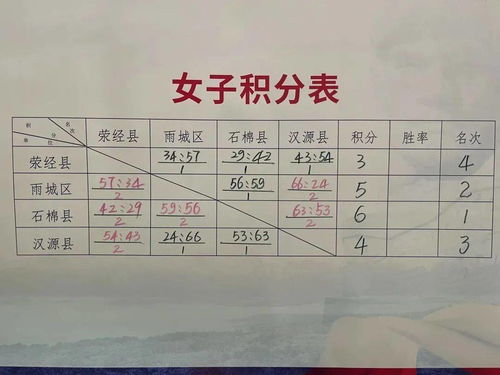 女子积分表
积分 名次 单位 荥经县 雨城区 石棉县 汉源县 积分 胜率 名次
荥经县 34:57 1 29:42 1 43:54 1 3 4
雨城区 57:34 2 56:59 1 66:24 2 5 2
石棉县 42:29 2 59:56 2 63:53 2 6 1
汉源县 54:43 2 24:66 1 53:63 1 4 3